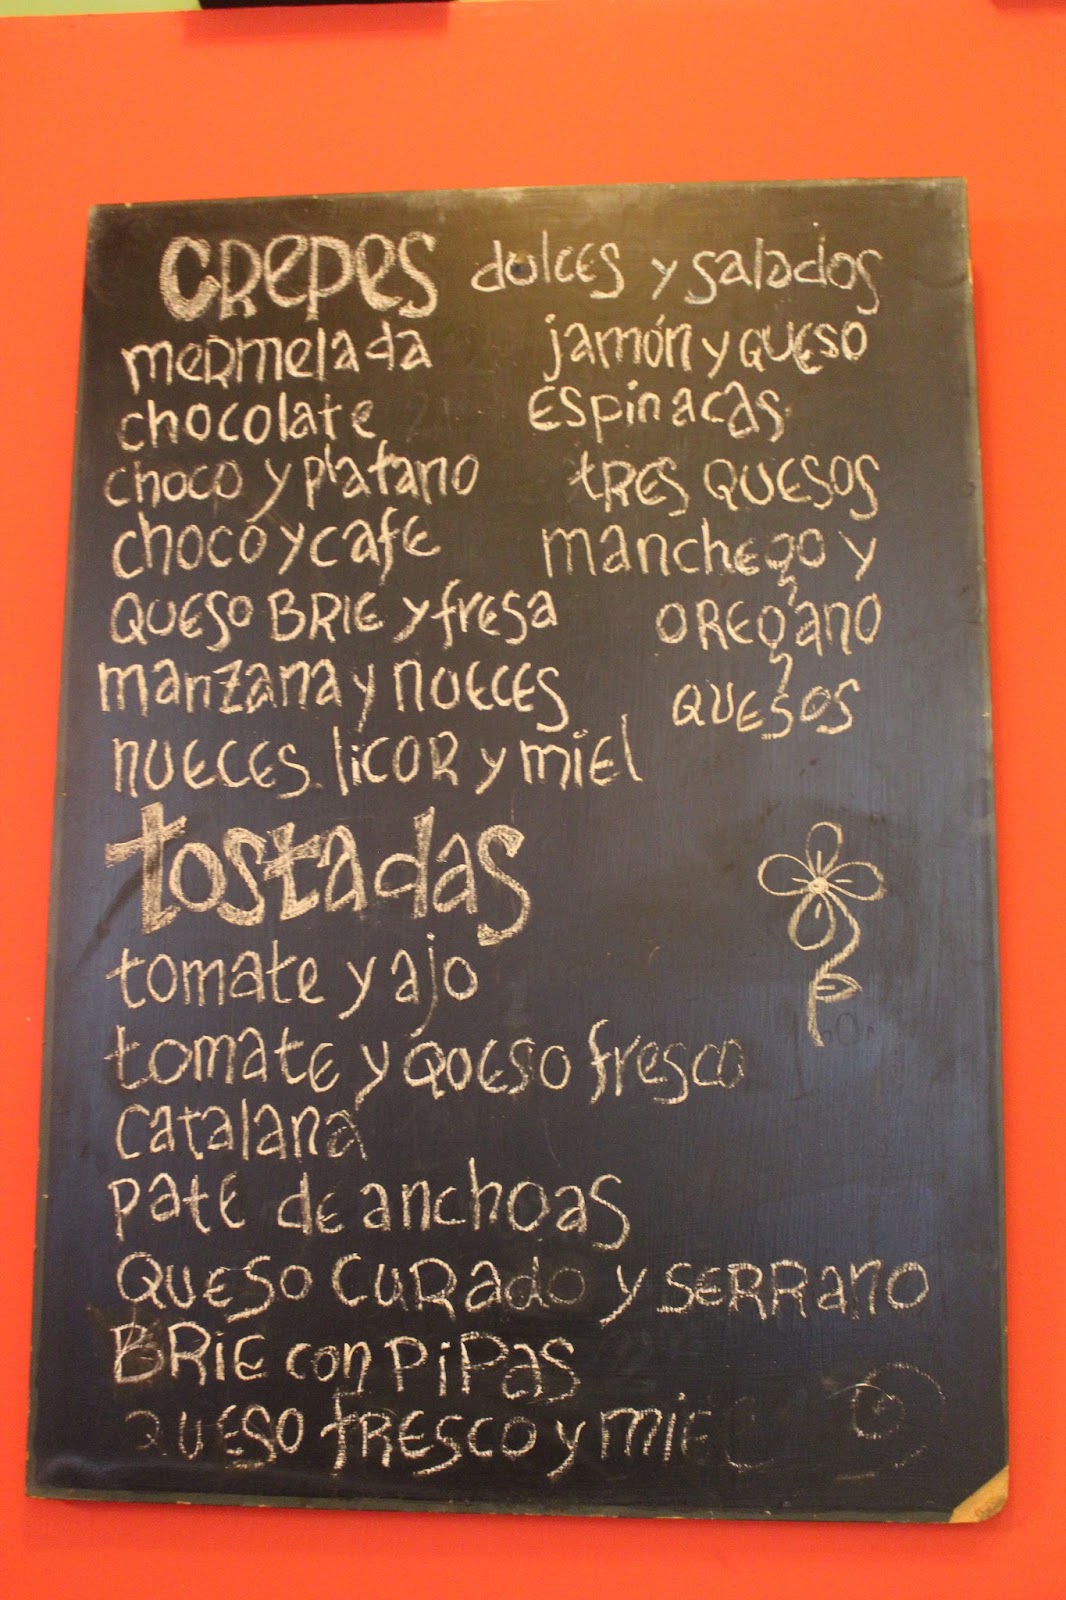 CRepes dulces y salados
mermelada
chocolate
choco y platano
choco y cafe
QUESO BRIE y fresa
manzana y nueces
nueces licor y miel
jamón y QUESO
Espinacas
tres QUESOS
manchego y
oregano
QUESOS
tostadas
tomate y ajo
tomate y QUESO fresco
catalana
pate de anchoas
QUESO CURado y SERRano
BRIE con PiPas
QUESO fresco y miel